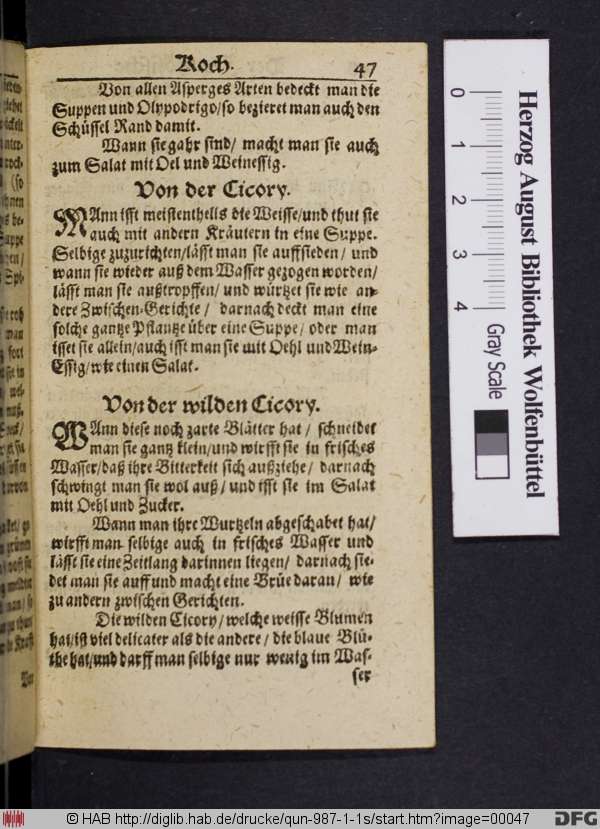 Koch. 47
Von allen Asperges Arten bedeckt man die
Suppen und Olypodrigo/so bezieret man auch den
Schüssel Rand damit.
Wann sie gahr sind/ macht man sie auch
zum Salat mit Oel und Weinessig.
Von der Cicory.
MAnn isst meistentheils die Weisse/und thut sie
auch mit andern Kräutern in eine Suppe.
Selbige zuzurichten/lässt man sie auffsieden/ und
wann sie wieder auß dem Wasser gezogen worden/
lässt man sie außtropffen/ und würtzet sie wie an-
dere Zwischen-Gerichte / darnach deckt man eine
solche gantze Pflantze über eine Suppe/ oder man
isset sie allein/auch isst man sie mit Oehl und Wein-
Essig/wie einen Salat.
Von der wilden Cicory.
WAnn diese noch zarte Blätter hat / schneidet
man sie gantz klein/und wirfft sie in frisches
Wasser/daß ihre Bitterkeit sich außziehe/ darnach
schwingt man sie wol auß/ und isst sie im Salat
mit Oehl und Zucker.
Wann man ihre Wurtzeln abgeschabet hat/
wirfft man selbige auch in frisches Wasser und
lässt sie eine Zeitlang darinnen liegen/ darnach sie-
det man sie auff und macht eine Brüe daran/ wie
zu andern zwischen Gerichten.
Die wilden Cicory/welche weisse Blumen
hat/ist viel delicater als die andere/ die blaue Blü-
the hat/und darff man selbige nur wenig im Was-
ser
Herzog August Bibliothek Wolfenbüttel
0 1 2 3 4
Gray Scale
© HAB http://diglib.hab.de/drucke/qun-987-1-1s/start.htm?image=00047
DFG